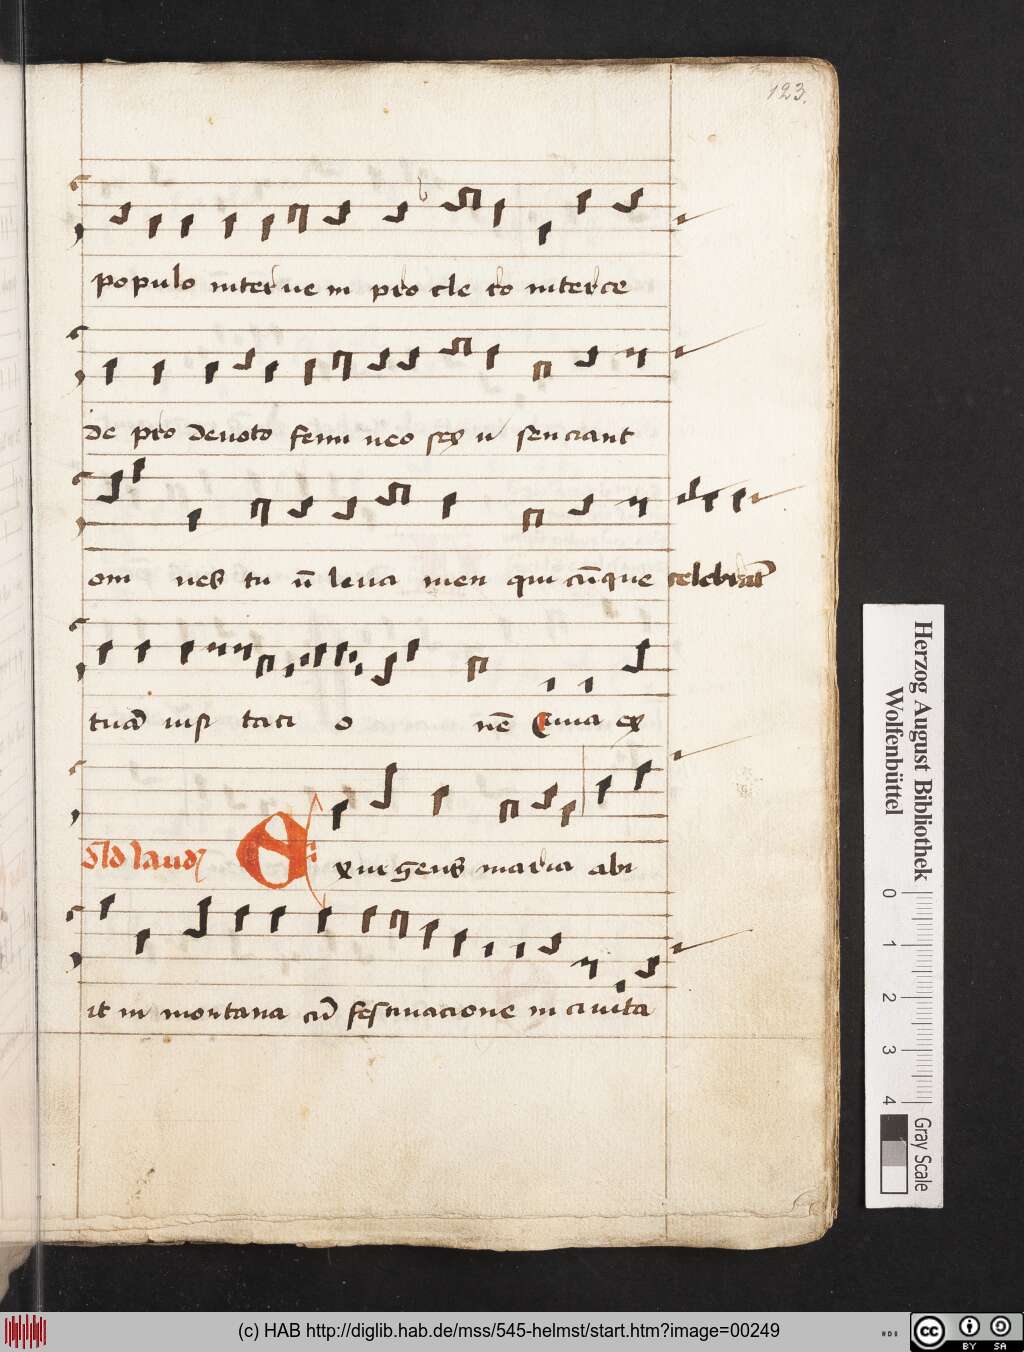 123.
populo interue ni pro cle ro interce
de pro deuoto femi neo sex⁹ ut senciant
om nes tu ū leua men qui cūque celebrāt
tuā uisi taci o nē Euua ex
Ad laud E xurgens maria abi
it in montana cū festinacione in ciuita
Herzog August Bibliothek
Wolfenbüttel
0 1 2 3 4
Gray Scale
(c) HAB http://diglib.hab.de/mss/545-helmst/start.htm?image=00249
cc BY SA